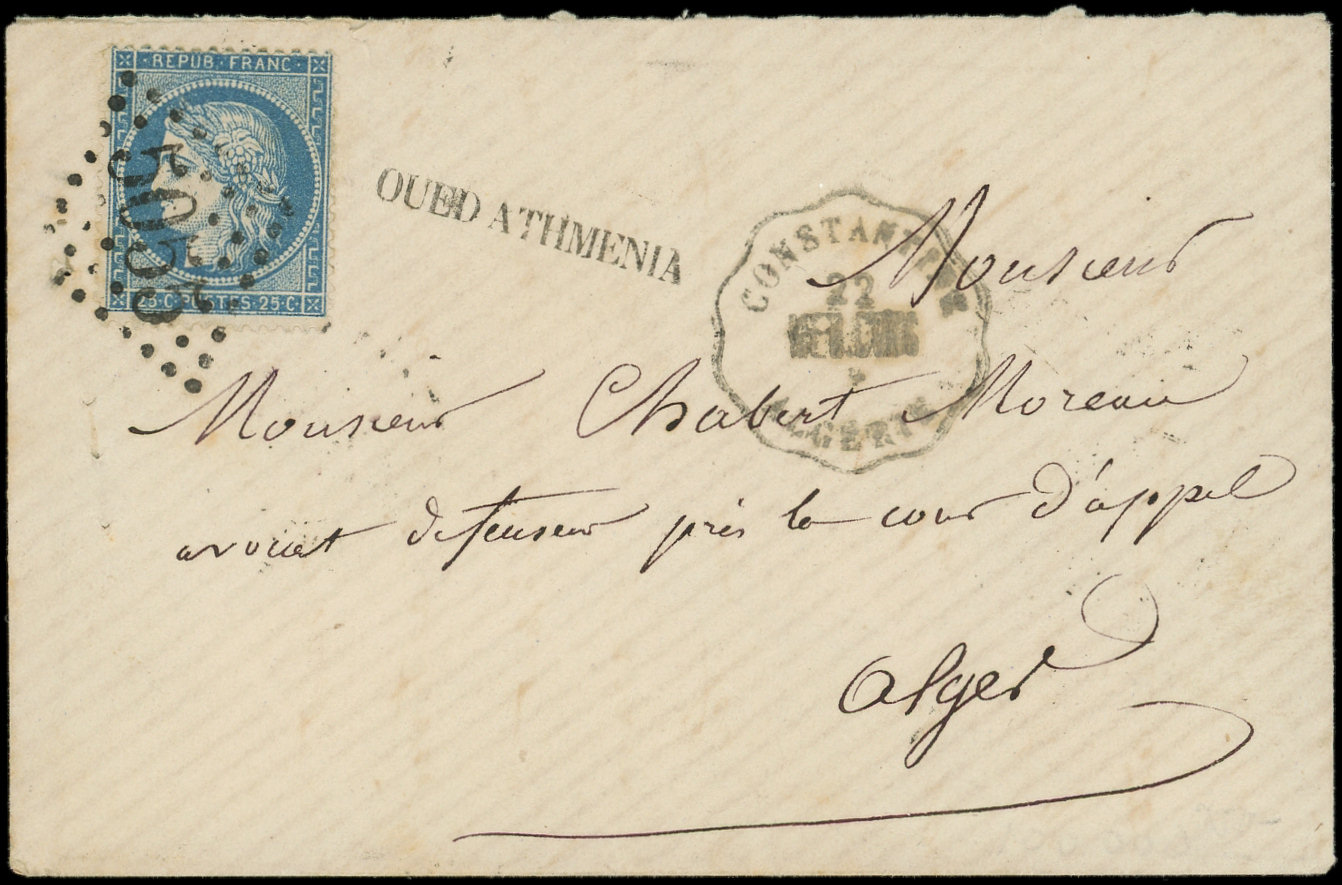 REPUB·FRANC·
25·C·POSTES·25·C·
OUED ATHMENIA
CONSTANTINE
22
ALGÉRIE
Monsieur
Monsieur Chabert Moreau
avocat defenseur près la cour d'appel
Alger